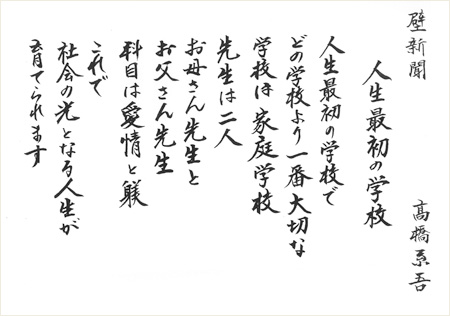 壁新聞
高橋系吾
人生最初の学校
人生最初の学校で
どの学校より一番大切な
学校は家庭学校
先生は二人
お母さん先生と
お父さん先生
科目は愛情と躾
これで
社会の光となる人生が
育てられます